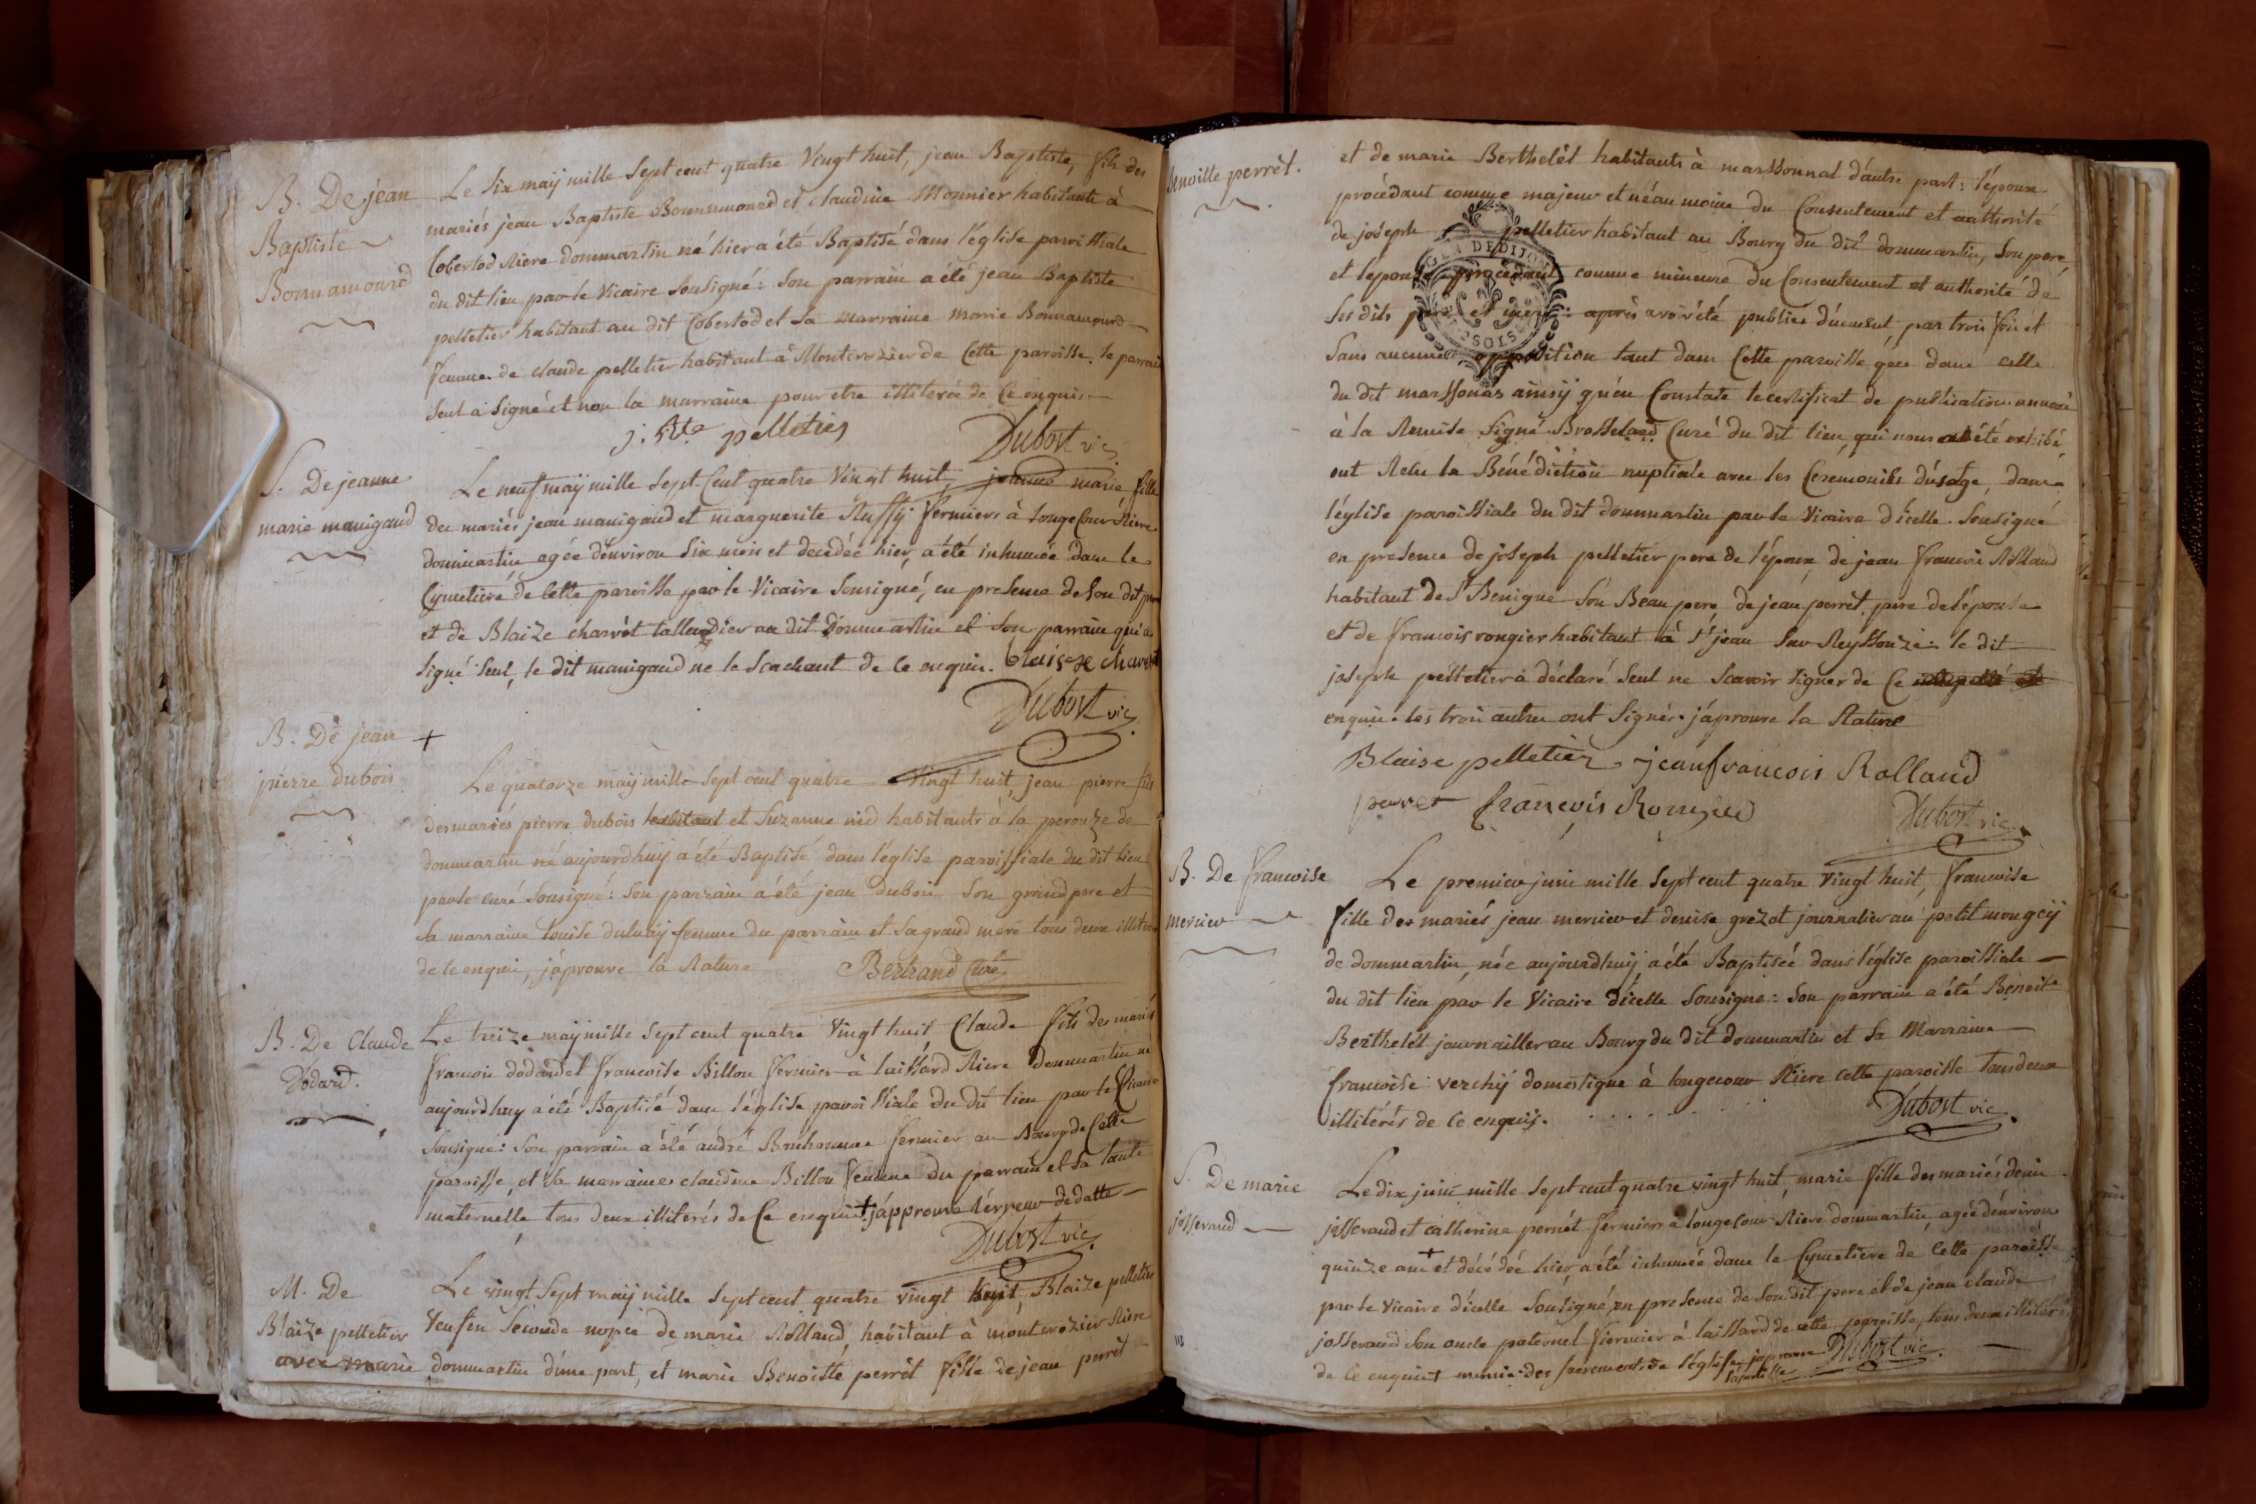 B. De jean
Baptiste
Bonnamourd
Le six maÿ mille sept cent quatre vingt huit, jean Baptiste, fils des
mariés jean Baptiste Bonnamourd et claudine Monnier habitants à
Cobertod riere dommartin né hier a été Baptisé dans l'église paroissiale
du dit lieu par le vicaire sousigné: son parrain a été jean Baptiste
pelletier habitant au dit Cobertod et sa marraine marie Bonnamourd
femme de claude pelletier habitant à Monterozier de Cette paroisse. le parrain
seul a signé et non la marraine pour etre illiterée de ce enquis
j. Bte pelletier
Dubost vic.
S. De jeanne
marie manigaud
Le neuf maÿ mille sept Cent quatre vingt huit, jeanne marie fille
des mariés jean manigaud et marguerite Ruffÿ fermiers à longecour Riere
dommartin agée d'environ six mois et decedée hier, a été inhumée dans le
Cymetiere de Cette paroisse par le vicaire sousigné, en presence de son dit pere
et de Blaize charvet tallendier au dit dommartin et son parrain qui a
signé seul, le dit manigaud ne le scachant de ce enquis. blaise charvet
Dubost vic.
B. De jean
pierre dubois
+
Le quatorze maÿ mille sept cent quatre vingt huit, jean pierre fils
des mariés pierre dubois habitant et Suzanne nid habitants à la perouze de
dommartin né aujourdhuÿ a été Baptisé dans l'église paroissiale du dit lieu
par le curé sousigné: son parrain a été jean Dubois son grand pere et
sa marraine louise dulaÿ femme du parrain et sa grand mere tous deux
de ce enquis, j'aprouve la Rature
Bertrand Curé
B. De Claude
Dodard.
Le treize maÿ mille sept cent quatre vingt huit Claude fils des mariés
francois dodard et francoise Billon fermier à laissard Riere Dommartin né
aujourdhuy a été Baptisé dans l'église paroissiale du dit lieu par le vicaire
sousigné: son parrain a été andré Bonhomme fermier au Bourg de Cette
paroisse, et sa marraine claudine Billon femme du parrain et sa tante
maternelle tous deux illiterés de Ce enquis + j'approuve l'érreur de datte
Dubost vic.
M. De
Blaize pelletier
avec marie
Le vingt sept maÿ mille sept cent quatre vingt huit, Blaize pelletier
veuf en seconde nopce de marie Rolland, habitant à monterozier Riere
dommartin d'une part, et marie Benoitte perrêt fille de jean perrêt
benoitte perrêt.
et de marie Berthelêt habitants à marssonnat d'autre part: l'époux
procédant comme majeur et néanmoins du Consentement et authorité
de joseph pelletier habitant au Bourg du dit dommartin, son pere,
et l'epouse procedant comme mineure du Consentement et authorité de
ses dits pere et mere: après avoir été publiés duement par trois fois et
sans aucune opposition tant dans Cette paroisse que dans celle
du dit marssonas ainsÿ qu'en Constate le certificat de publication annexé
à la Remise signé Brosseland Curé du dit lieu, qui nous a été exhibé,
ont Recu la Bénédiction nuptiale avec les Ceremonies d'usage, dans
l'église paroissiale du dit dommartin par le vicaire d'icelle sousigné
en presence de joseph pelletier pere de l'époux, de jean francois Rolland
habitant de St Benigne son Beau pere, de jean perrêt pere de l'épouse
et de francois rongier habitant à St jean sur Reyssouze: le dit
joseph pelletier a déclaré seul ne scavoir signer de Ce
enquis. les trois autres ont signés. j'aprouve la Rature
Blaise pelletier jeanfrancois Rolland
peret francois Rongier
Dubost vic.
B. De francoise
mercier
Le premier juin mille sept cent quatre vingt huit, francoise
fille des mariés jean mercier et denise grezot journalier au petit mongeÿ
de dommartin, née aujourdhuÿ a été Baptisée dans l'église paroissiale
du dit lieu par le vicaire d'icelle sousigné: son parrain a été Benoit
Berthelêt journailler au Bourg du dit dommartin et sa Marraine
francoise verchÿ domestique à longecour Riere cette paroisse tous deux
illitérés de ce enquis.
Dubost vic.
S. De marie
josserand
Le dix juin mille sept cent quatre vingt huit, marie fille des mariés denis
josserand et catherine pernêt fermiers à longecour Riere dommartin, agée d'environ
quinze ans + et décédée hier, a été inhumée dans le Cymetiere de Cette paroisse
par le vicaire d'icelle sousigné, en presence de son dit pere et de jean claude
josserand son oncle paternel fermier à laissard de cette paroisse, tous deux illiterés
de ce enquis + munie des sacrements de l'église j'aprouve
Dubost vic.